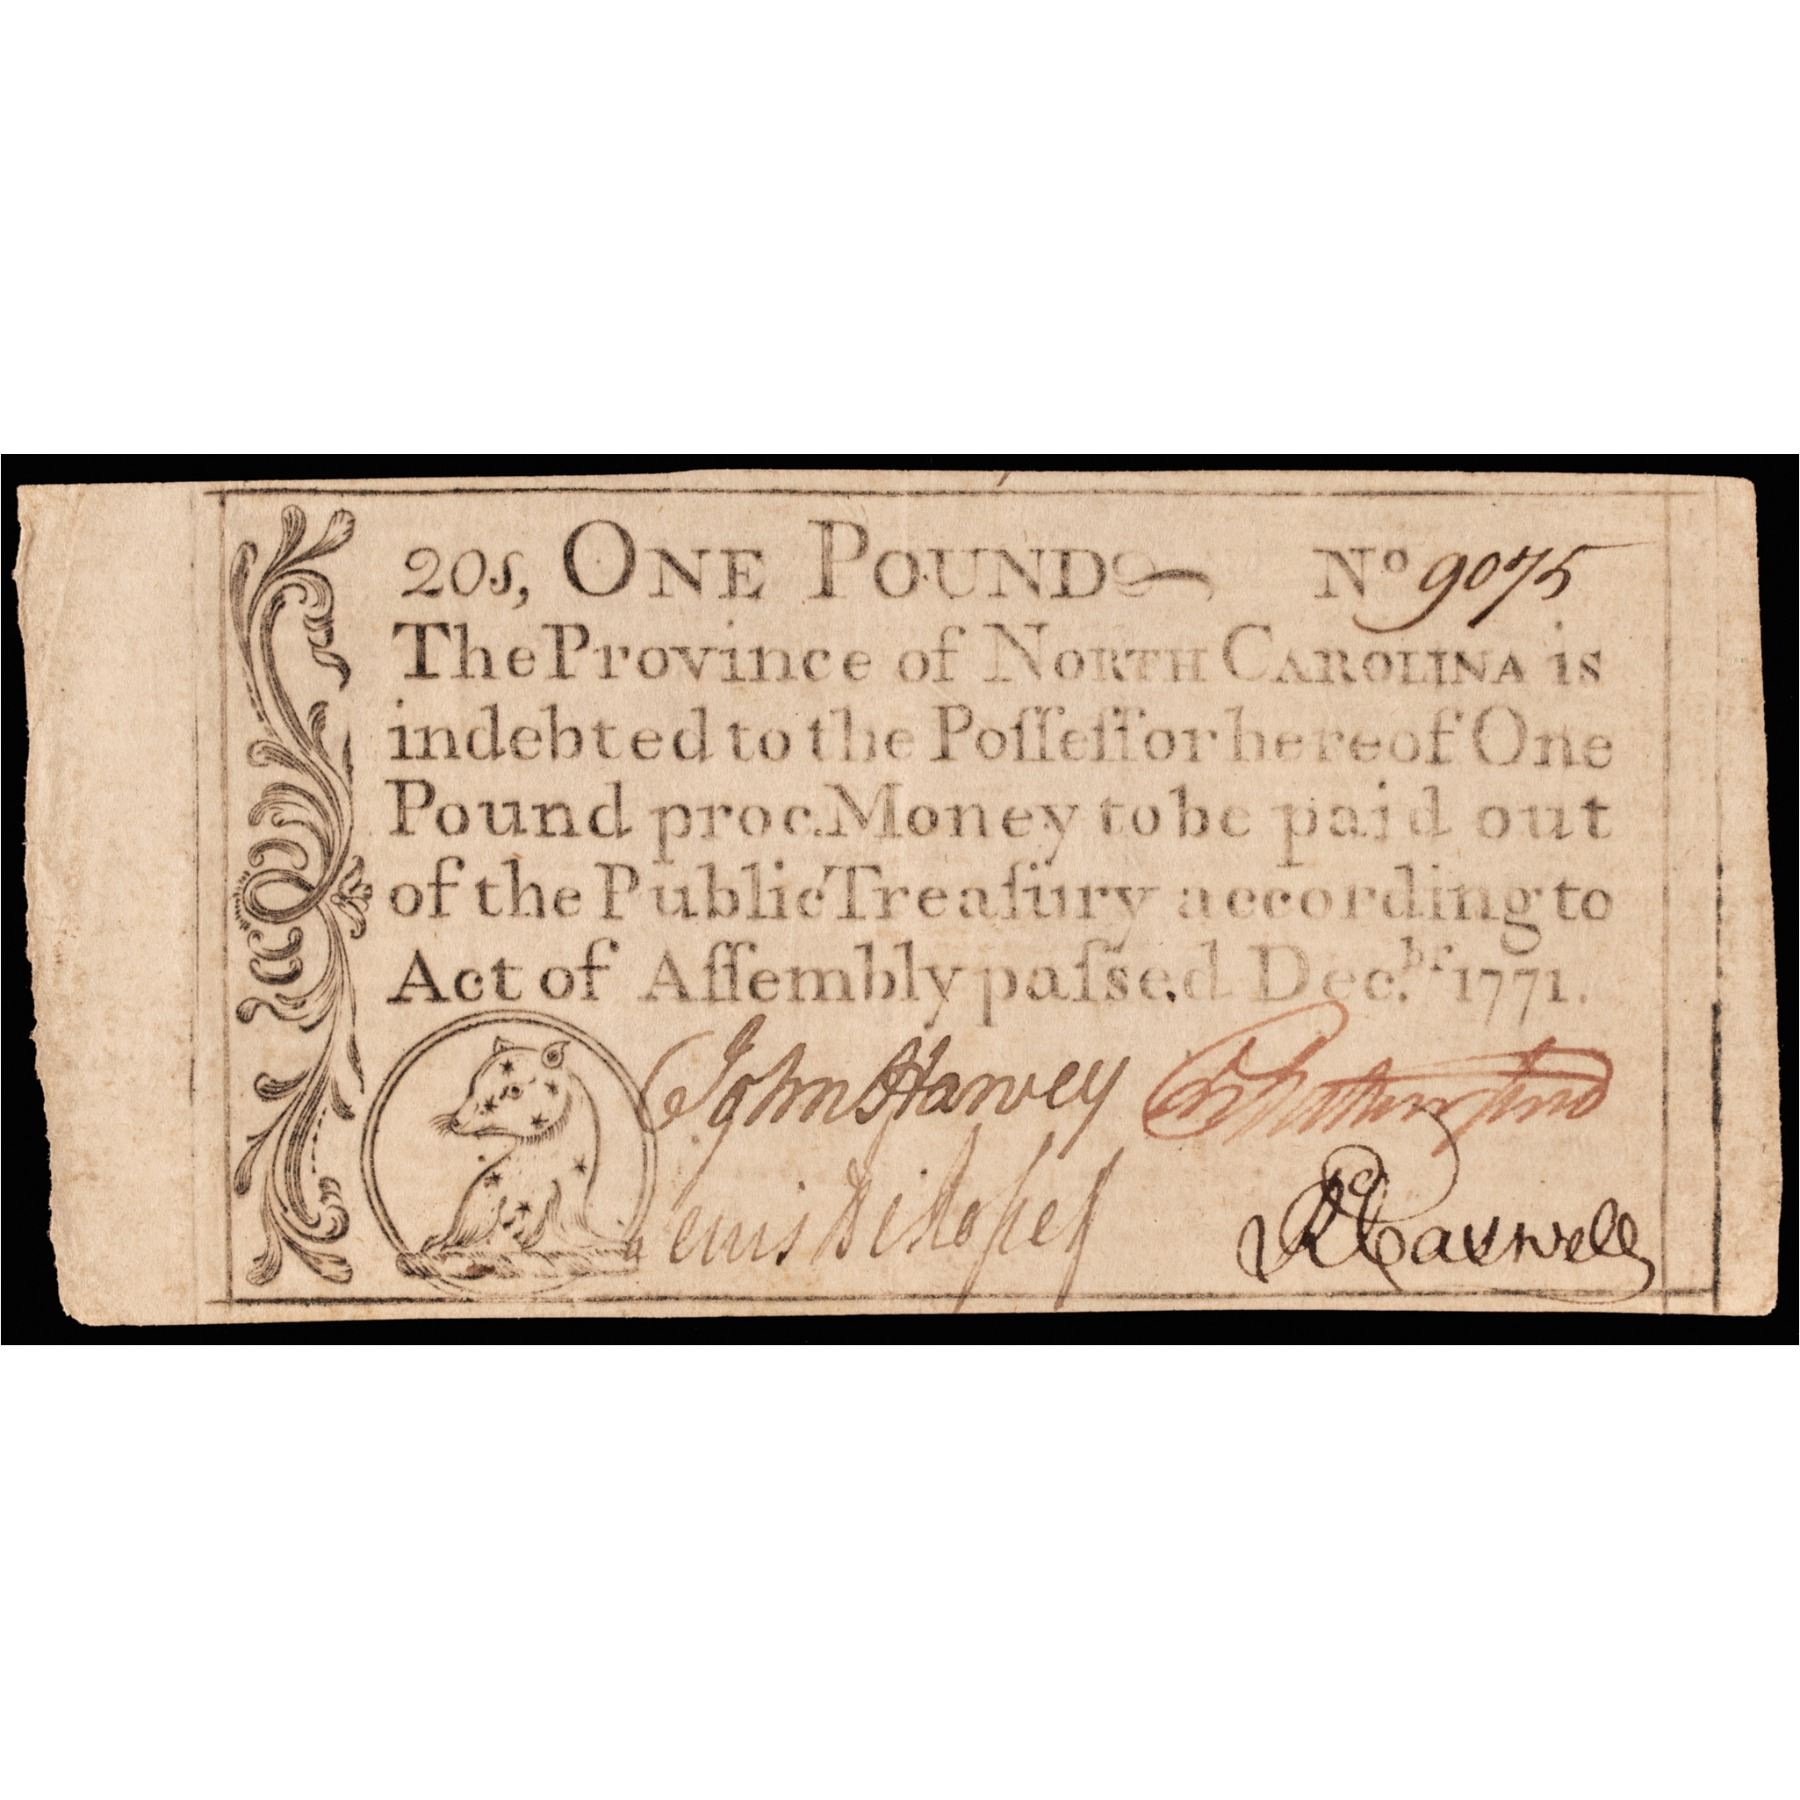 20s, ONE POUND No 9075
The Province of NORTH CAROLINA is
indebted to the Poſſeſſor hereof One
Pound proc. Money to be paid out
of the Public Treaſury according to
Act of Aſſembly paſsed Dec.br 1771.
John Harvey R Rutherfurd
Lewis DeRosset
R Caswell